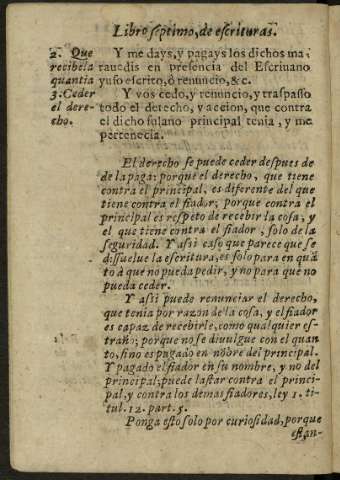 Libro septimo, de escrituras.
2. Que
recibe la
quantia
3. Ceder
el dere-
cho.
Y me days, y pagays los dichos ma-
rauedis en presencia del Escriuano
yuso escrito, ò renuncio, &c.
Y vos cedo, y renuncio, y traspasso
todo el derecho, y accion, que contra
el dicho fulano principal tenia, y me
pertenecia.
El derecho se puede ceder despues de
de la paga: porque el derecho, que tiene
contra el principal, es diferente del que
tiene contra el fiador; porque contra el
principal es respeto de recebir la cosa, y
el que tiene contra el fiador, solo de la
seguridad. Y assi caso que parece que se
dissuelue la escritura, es solo para en quã
to à que no pueda pedir, y no para que no
pueda ceder.
Y assi puede renunciar el derecho,
que tenia por razon de la cosa, y el fiador
es capaz de recebirle, como qualquier es-
traño; porque no se diuulgue con el quan
to, sino es pagado en nõbre del principal.
Y pagado el fiador en su nombre, y no del
principal; puede lastar contra el princi-
pal, y contra los demas fiadores, ley 1. ti-
tul. 12. part. 5.
Ponga esto solo por curiosidad, porque
estan-